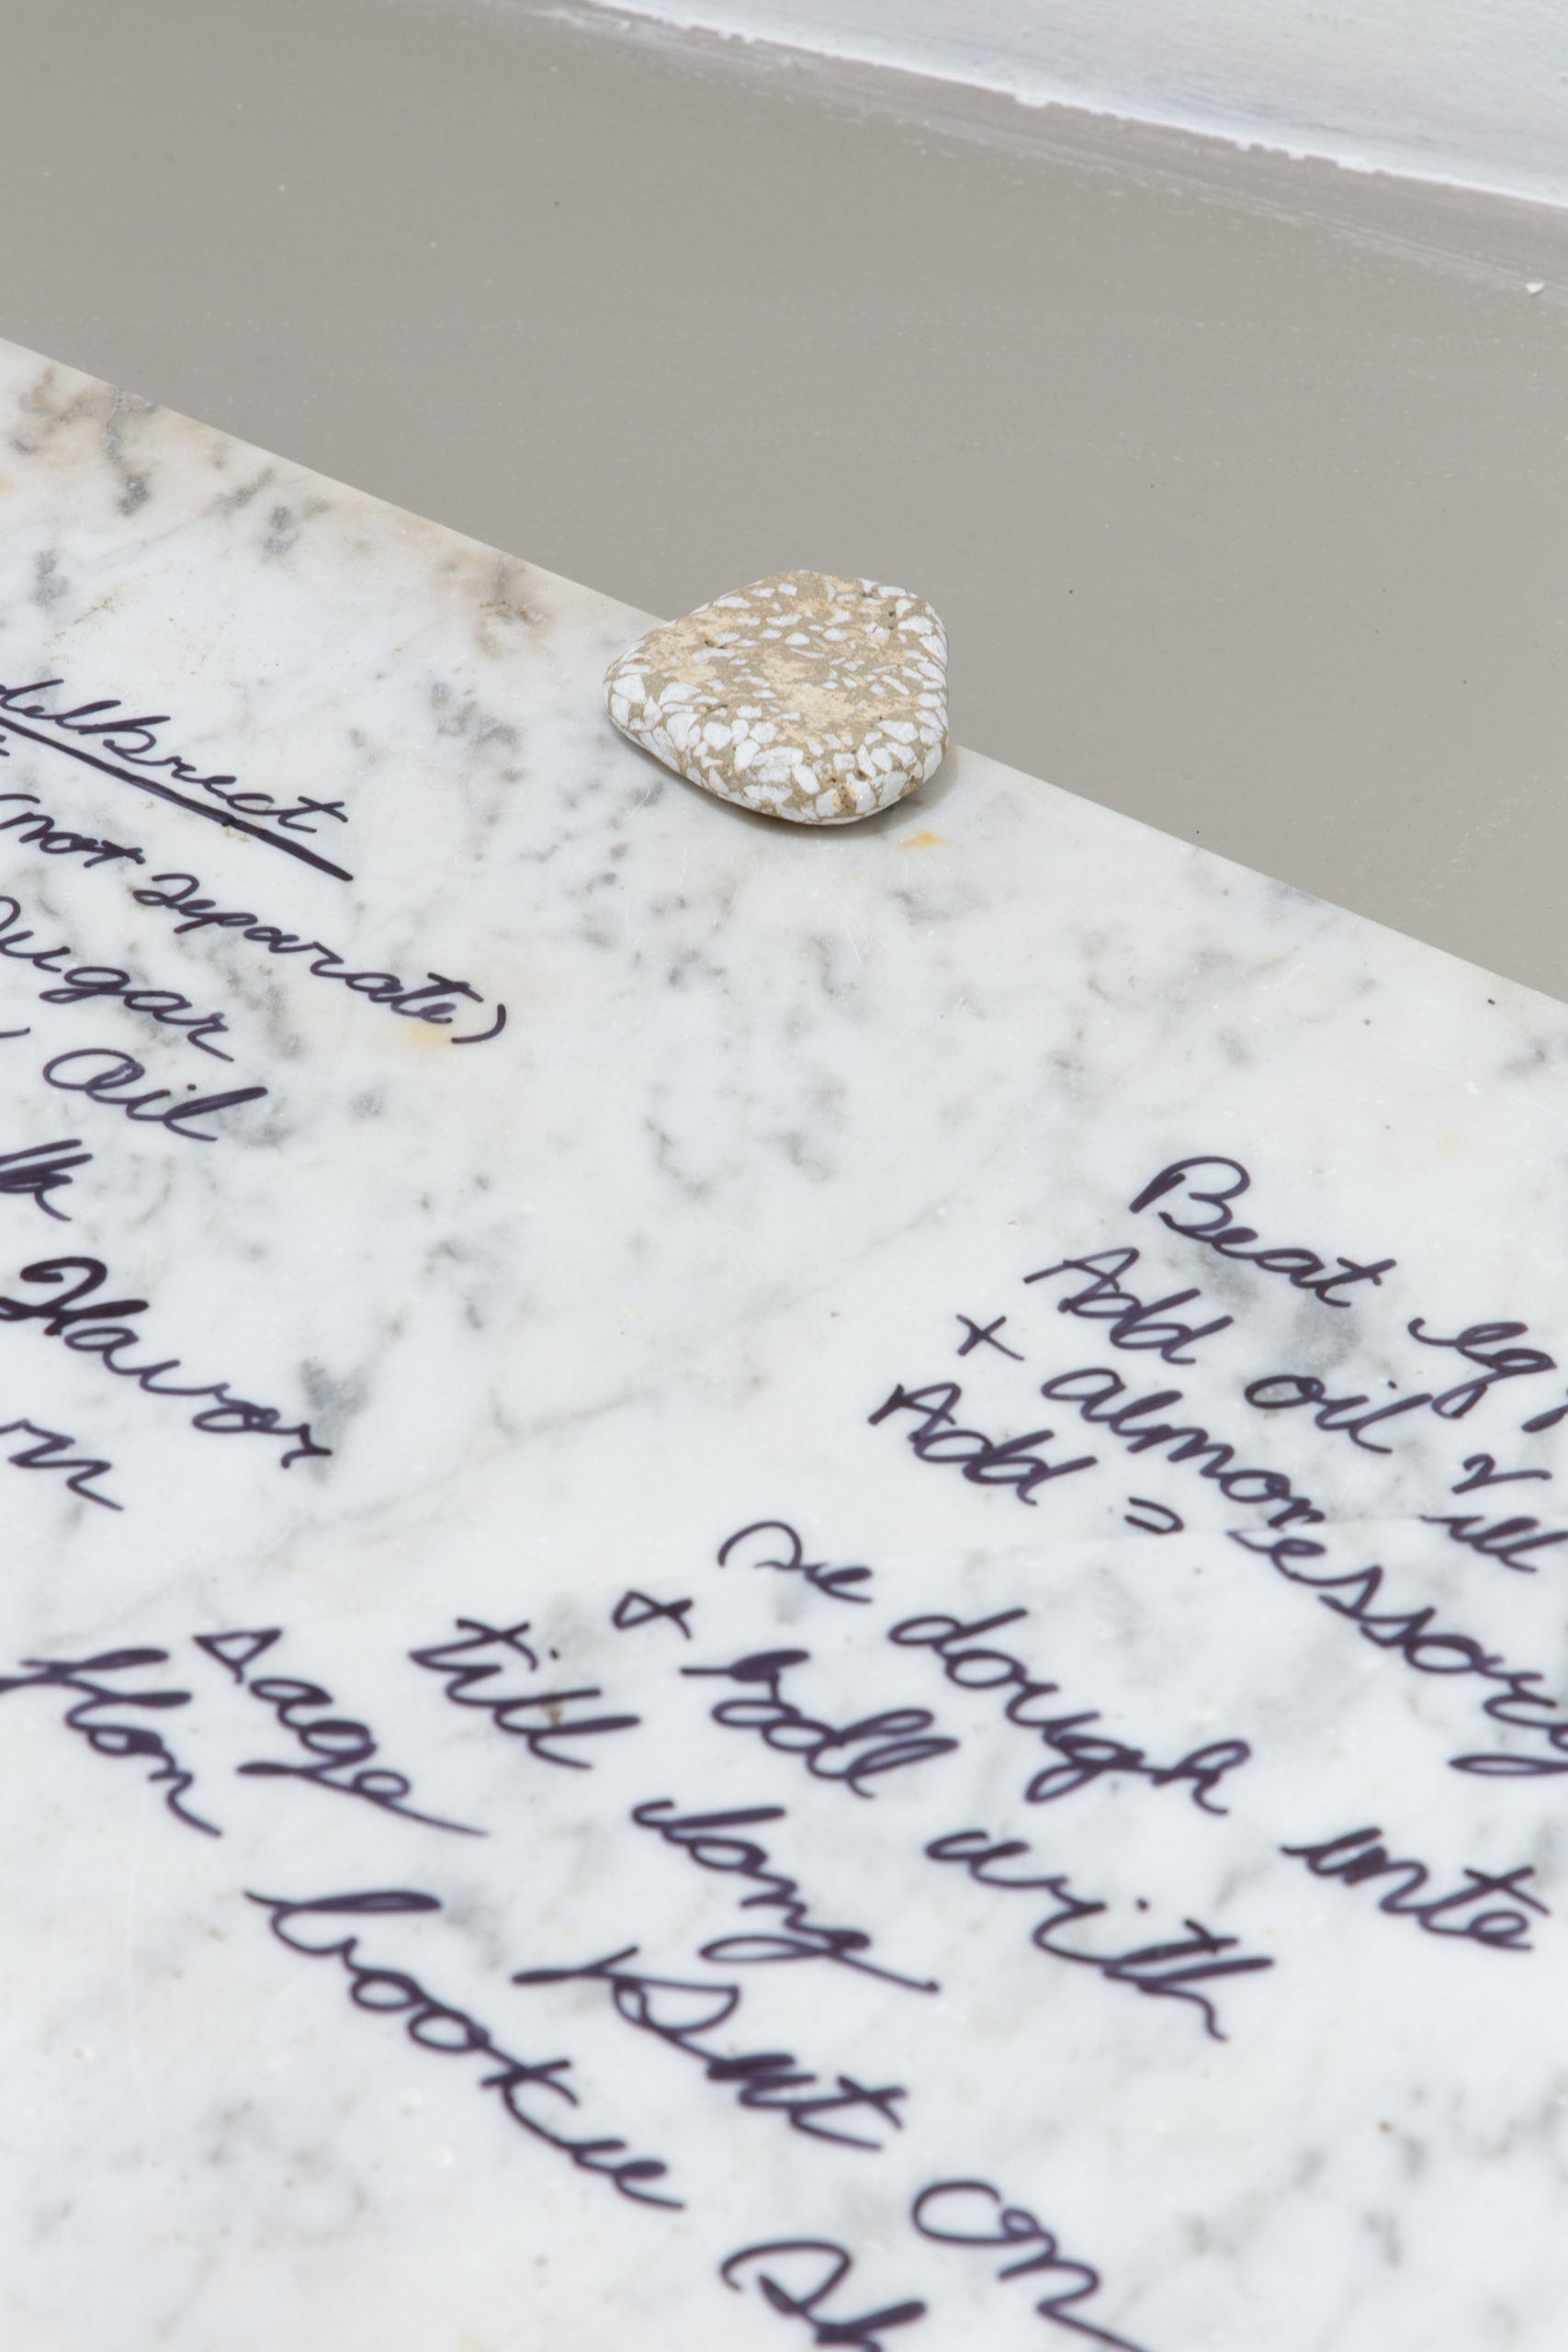 delbrect
(not separate)
Sugar
Oil
Flavor
Beat eg
Add oil
+ almon
Add = essory
dough into
+ Roll with
till long
sage Put on
flon cookie Sh